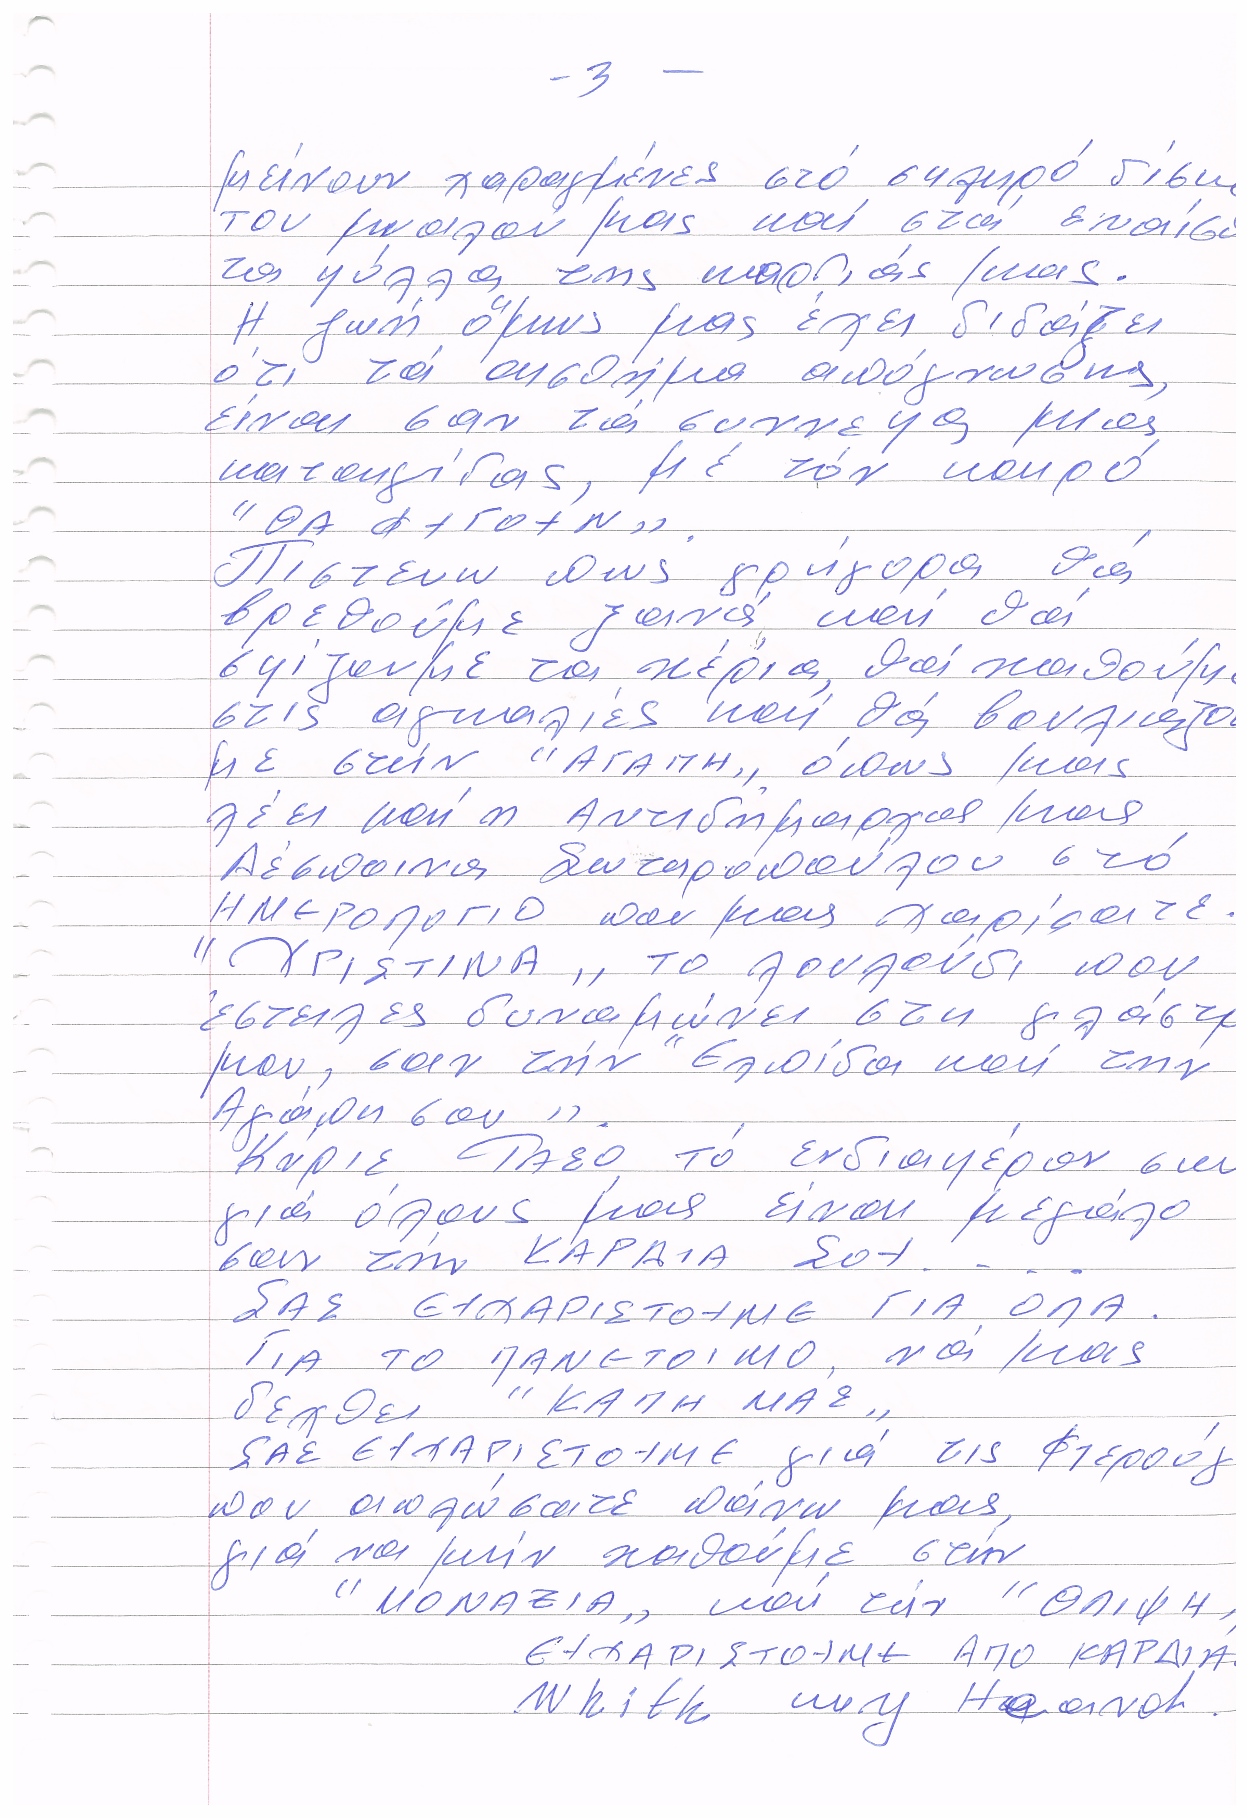 - 3 -
μείνουν χαραγμένες στό σκληρό δίσκ
του μυαλού μας καί στά ευαίσθ
τα φύλλα της καρδιάς μας.
Η ζωή όμως μας έχει διδάξει
ότι τά αισθήμα απόγνωσης,
είναι σαν τά συννεφα μιας
καταιγίδας, μέ τόν καιρό
"ΘΑ ΦΥΓΟΥΝ".
Πιστευω πως γρήγορα θά
βρεθούμε ξανά καί θά
σφίξουμε τα χέρια, θά χαθούμε
στις αγκαλιές καί θά βουλιάξου
με στήν "ΑΓΑΠΗ", όπως μας
λέει καί η Αντιδήμαρχος μας
Δέσποινα Σωταροπούλου στό
ΗΜΕΡΟΛΟΓΙΟ που μας χαρίσατε.
"ΧΡΙΣΤΙΝΑ" το λουλούδι που
έστειλες δυναμώνει στη γλάστρ
μου, σαν τήν "Ελπίδα καί την
Αγάπη σου".
Κύριε ΤΑΣΟ, τό ενδιαφέρον σου
γιά όλους μας είναι μεγάλο
σαν τήν ΚΑΡΔΙΑ ΣΟΥ....
ΣΑΣ ΕΥΧΑΡΙΣΤΟΥΜΕ ΓΙΑ ΟΛΑ.
ΓΙΑ ΤΟ ΠΑΝΕΤΟΙΜΟ, νά μας
δεχθει "ΚΑΠΗ ΜΑΣ"
ΣΑΣ ΕΥΧΑΡΙΣΤΟΥΜΕ γιά τις Φτερούγ
που απλώσατε πάνω μας,
γιά να μήν χαθούμε στήν
"ΜΟΝΑΞΙΑ" καί τήν "ΘΛΙΨΗ,
ΕΥΧΑΡΙΣΤΟΥΜΕ ΑΠΟ ΚΑΡΔΙΑ.